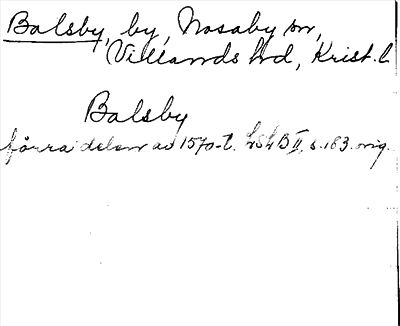 Balsby, by, Nosaby sn,
Villands hd, Krist. l.
Balsby
förra delen av 1570-t. LSLB II, s. 183. orig.